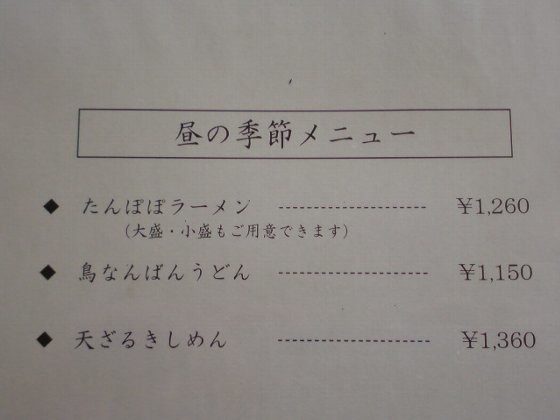 昼の季節メニュー
◆ たんぽぽラーメン ------------------ ¥1,260
（大盛・小盛もご用意できます）
◆ 鳥なんばんうどん ------------------ ¥1,150
◆ 天ざるきしめん ------------------ ¥1,360